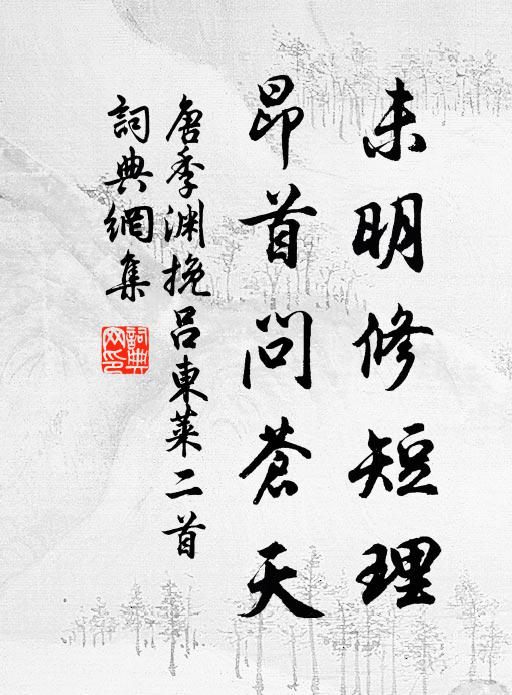 未明修短理
昂首問蒼天
唐季淵挽呂東萊二首
詞典網集
詞典網印